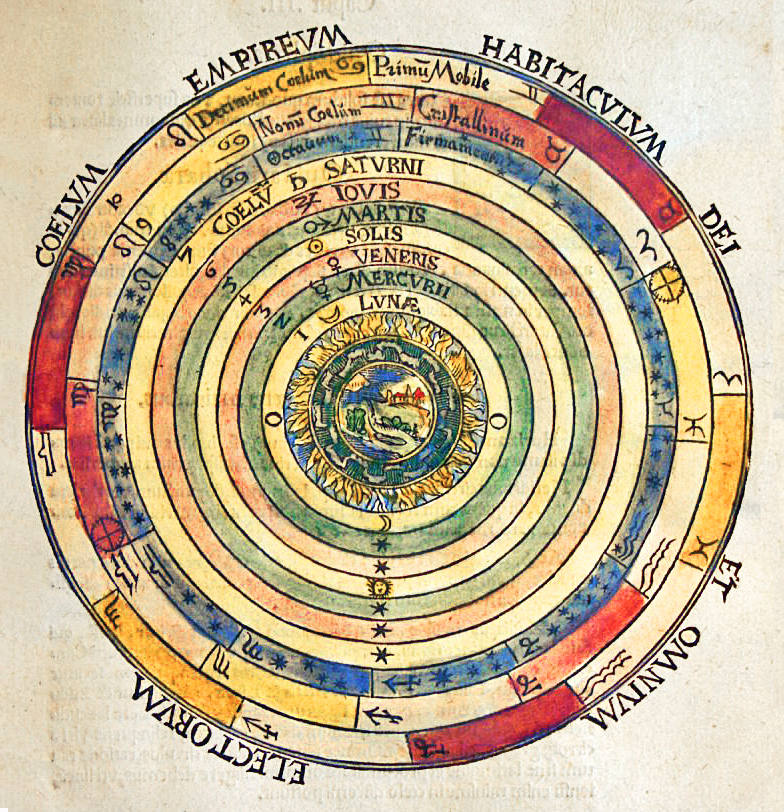 COELVM EMPIREVM HABITACVLVM DEI ET OMNIVM ELECTORVM
Decimũ Coelum ♋ Primũ Mobile ♊
Nonũ Coelum ♊ Cristallinũm
Octauum ♊ Firmamentũ
COELV̄ ♄ SATVRNI
♃ IOVIS
♂ MARTIS
☉ SOLIS
♀ VENERIS
☿ MERCVRII
LVNÆ
9
8
7
6
5
4
3
2
1